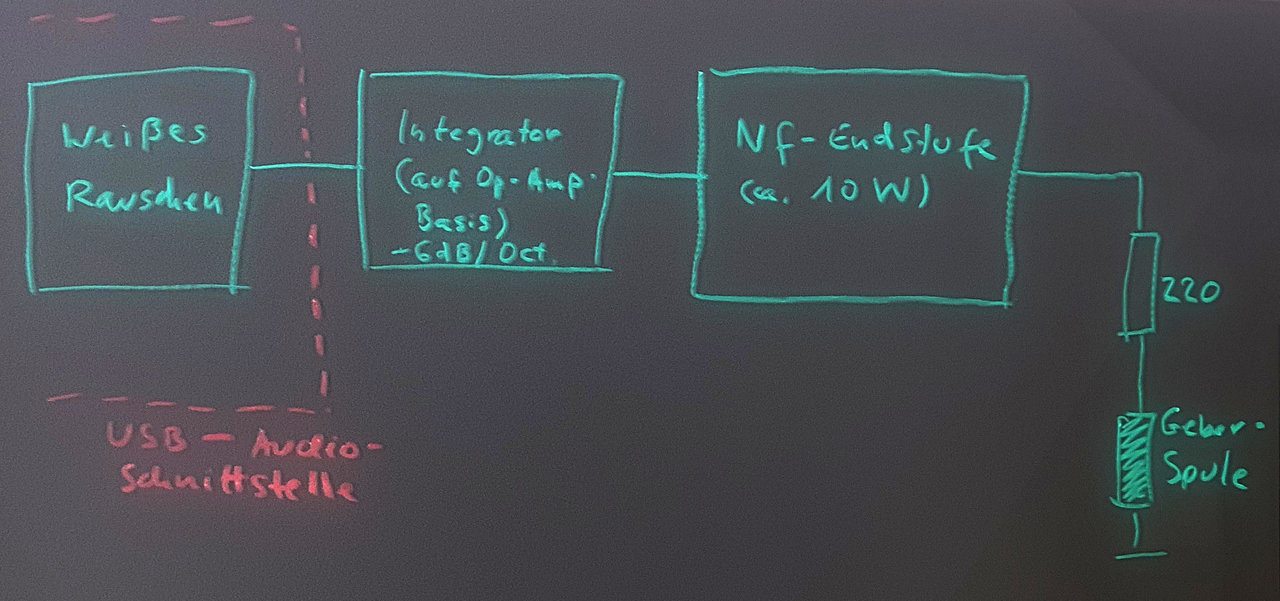 Weißes
Rauschen
Integrator
(auf Op-Amp-
Basis)
-6dB/Oct.
Nf-Endstufe
(ca. 10 W)
220
Geber-
Spule
USB-Audio-
Schnittstelle